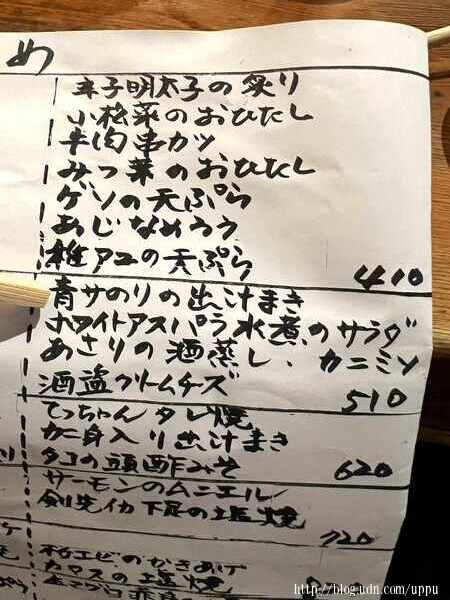 め
辛子明太子の炙り
小松菜のおひたし
牛肉串カツ
みつ葉のおひたし
ゲソの天ぷら
あじなめろう
稚アユの天ぷら
410
青サのりの出汁まき
ホワイトアスパラ水煮のサラダ
あさりの酒蒸し、カニミソ
酒盗クリームチーズ
510
てっちゃんタレ焼
カニ身入り出汁まき
タコの頭酢みそ
620
サーモンのムニエル
剣先イカ下足の塩焼
720
桜エビのかきあげ
カマスの塩焼
http://blog.udn.com/uppu